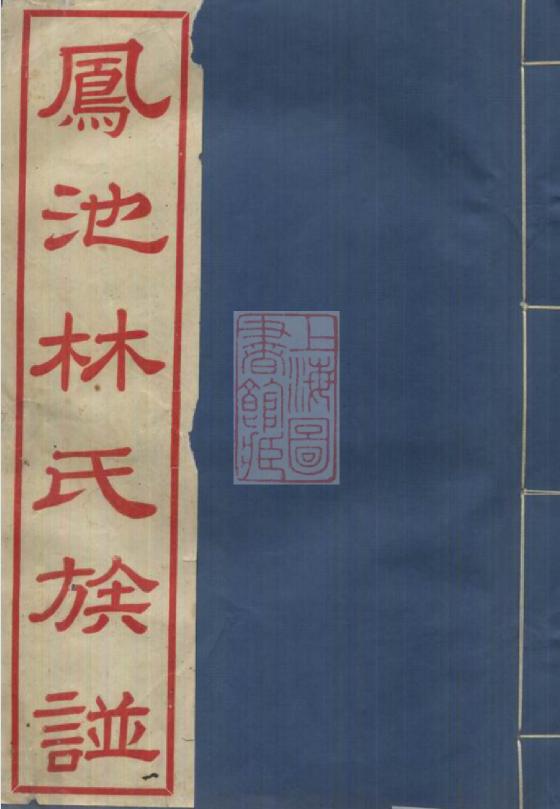 鳳池林氏族譜
上海圖
書館藏